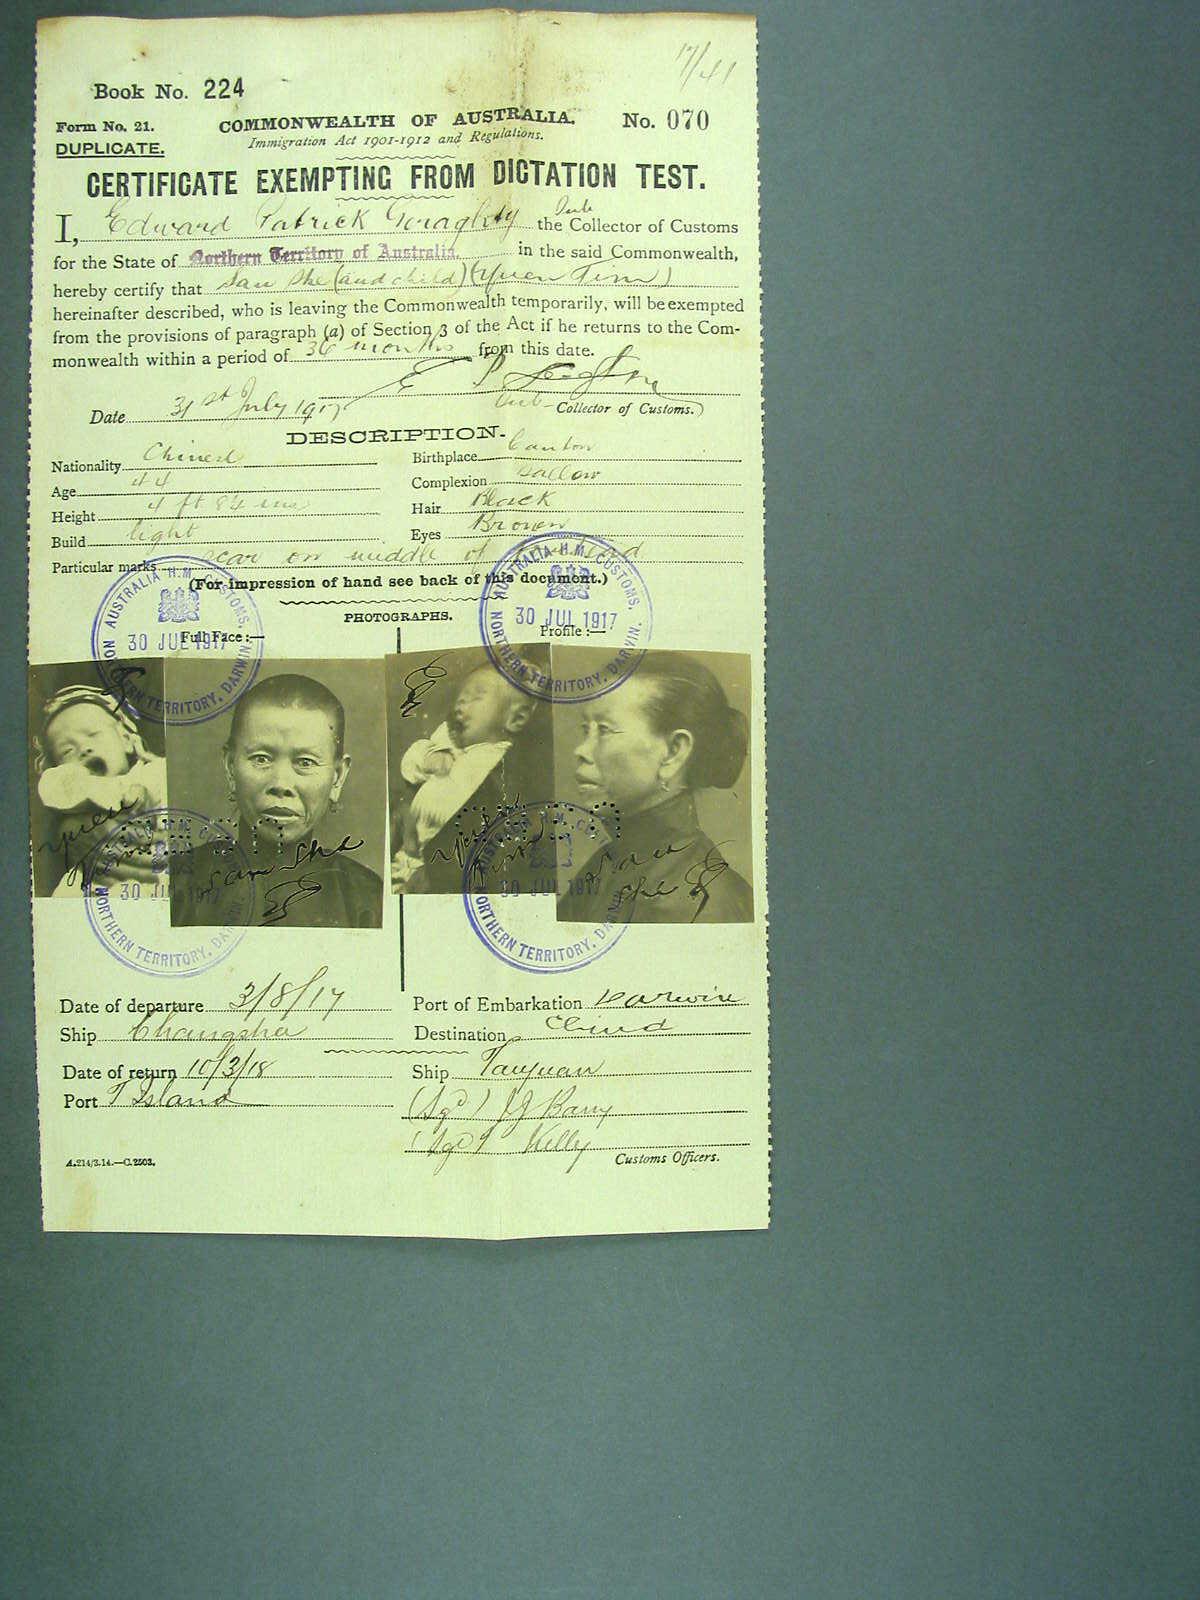 17/41
Book No. 224
Form No. 21.
COMMONWEALTH OF AUSTRALIA.
No. 070
DUPLICATE.
Immigration Act 1901-1912 and Regulations.
CERTIFICATE EXEMPTING FROM DICTATION TEST.
I, Edward Patrick Geraghty the Sub Collector of Customs
for the State of Northern Territory of Australia. in the said Commonwealth,
hereby certify that Sau She (and child) (Yuen Tim)
hereinafter described, who is leaving the Commonwealth temporarily, will be exempted
from the provisions of paragraph (a) of Section 3 of the Act if he returns to the Com-
monwealth within a period of 36 months from this date.
E P
Date 31st July 1917
Sub Collector of Customs.
DESCRIPTION.
Nationality Chinese
Birthplace Canton
Age 44
Complexion Sallow
Height 4 ft 8¼ ins
Hair Black
Build light
Eyes Brown
Particular marks scar on middle of forehead
(For impression of hand see back of this document.)
PHOTOGRAPHS.
Full Face :—
Profile :—
AUSTRALIA H.M. CUSTOMS.
30 JUL 1917
NORTHERN TERRITORY, DARWIN.
AUSTRALIA H.M. CUSTOMS.
30 JUL 1917
NORTHERN TERRITORY, DARWIN.
Yuen Tim
Sau She
Yuen Tim
Sau She
30 JUL 1917
NORTHERN TERRITORY, DARWIN.
30 JUL 1917
NORTHERN TERRITORY, DARWIN.
Date of departure 3/8/17
Port of Embarkation Darwin
Ship Changsha
Destination China
Date of return 10/3/18
Ship Taiyuan
Port T Island
(Sgd) J J Barry
(Sgd) Kelly
A.214/3.14.—C.2503.
Customs Officers.